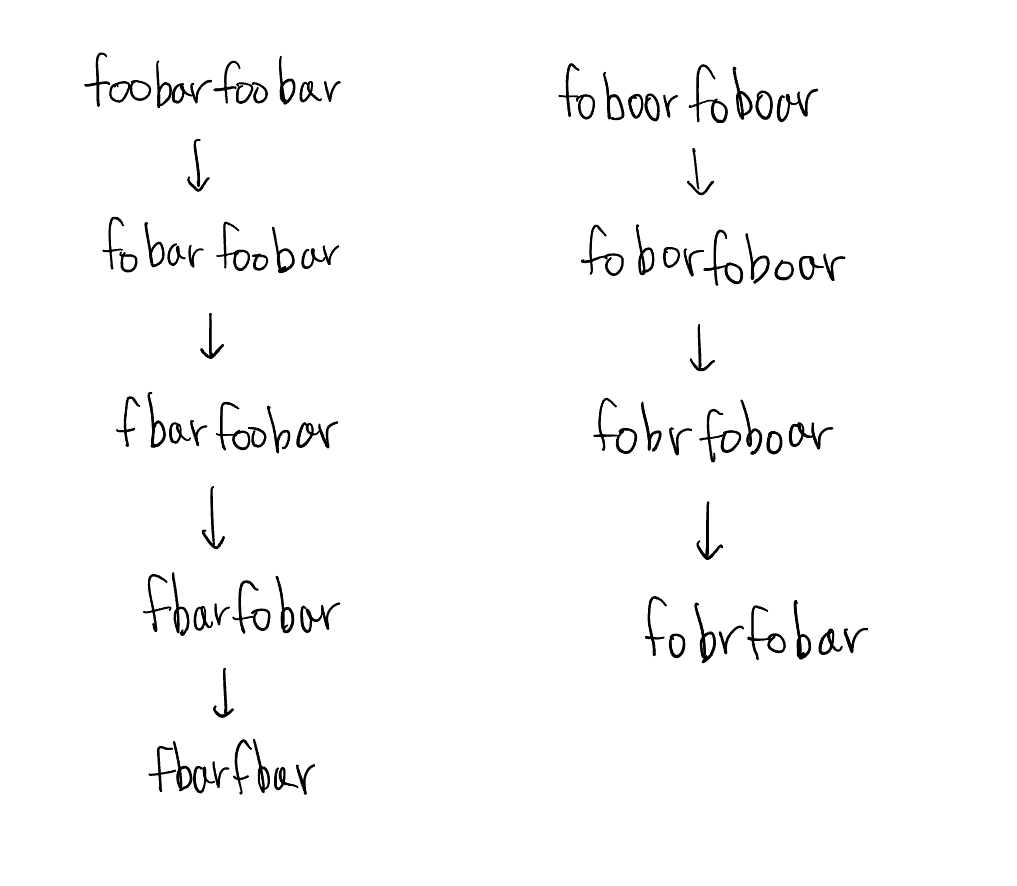 foobarfoobar
↓
fobarfoobar
↓
fbarfoobar
↓
fbarfobar
↓
fbarfbar
foboorfoboar
↓
foborfoboar
↓
fobrfoboar
↓
fobrfobar